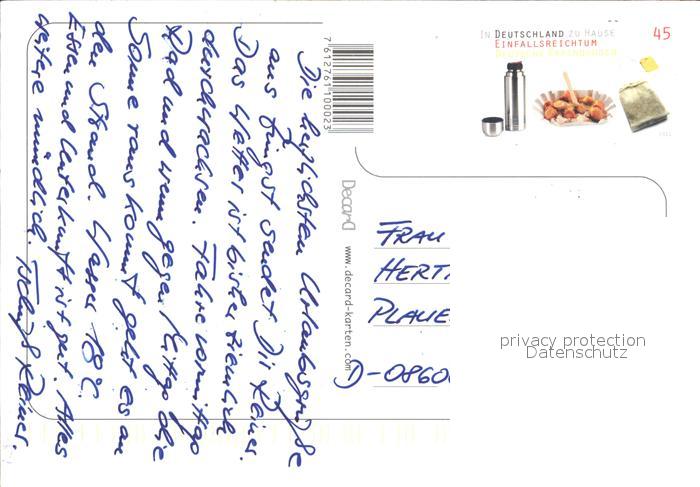 Die herzlichsten Urlaubsgrüße
aus Jüngst sendet Dir Reiner.
Das Wetter ist bisher ziemlich
durchwachsen. Fahre vormittags
Rad und wenn gegen Mittag die
Sonne raus kommt geht es an
den Strand. Wasser 18°C.
Essen und Unterkunft ist gut. Alles
weitere mündlich. Tschüß Reiner.
7612761100023
Decard www.decard-karten.com
IN DEUTSCHLAND ZU HAUSE
EINFALLSREICHTUM
DEUTSCHE ERFINDUNGEN
45
2011
FRAU
HERT
PLAUE
D-0860
privacy protection
Datenschutz